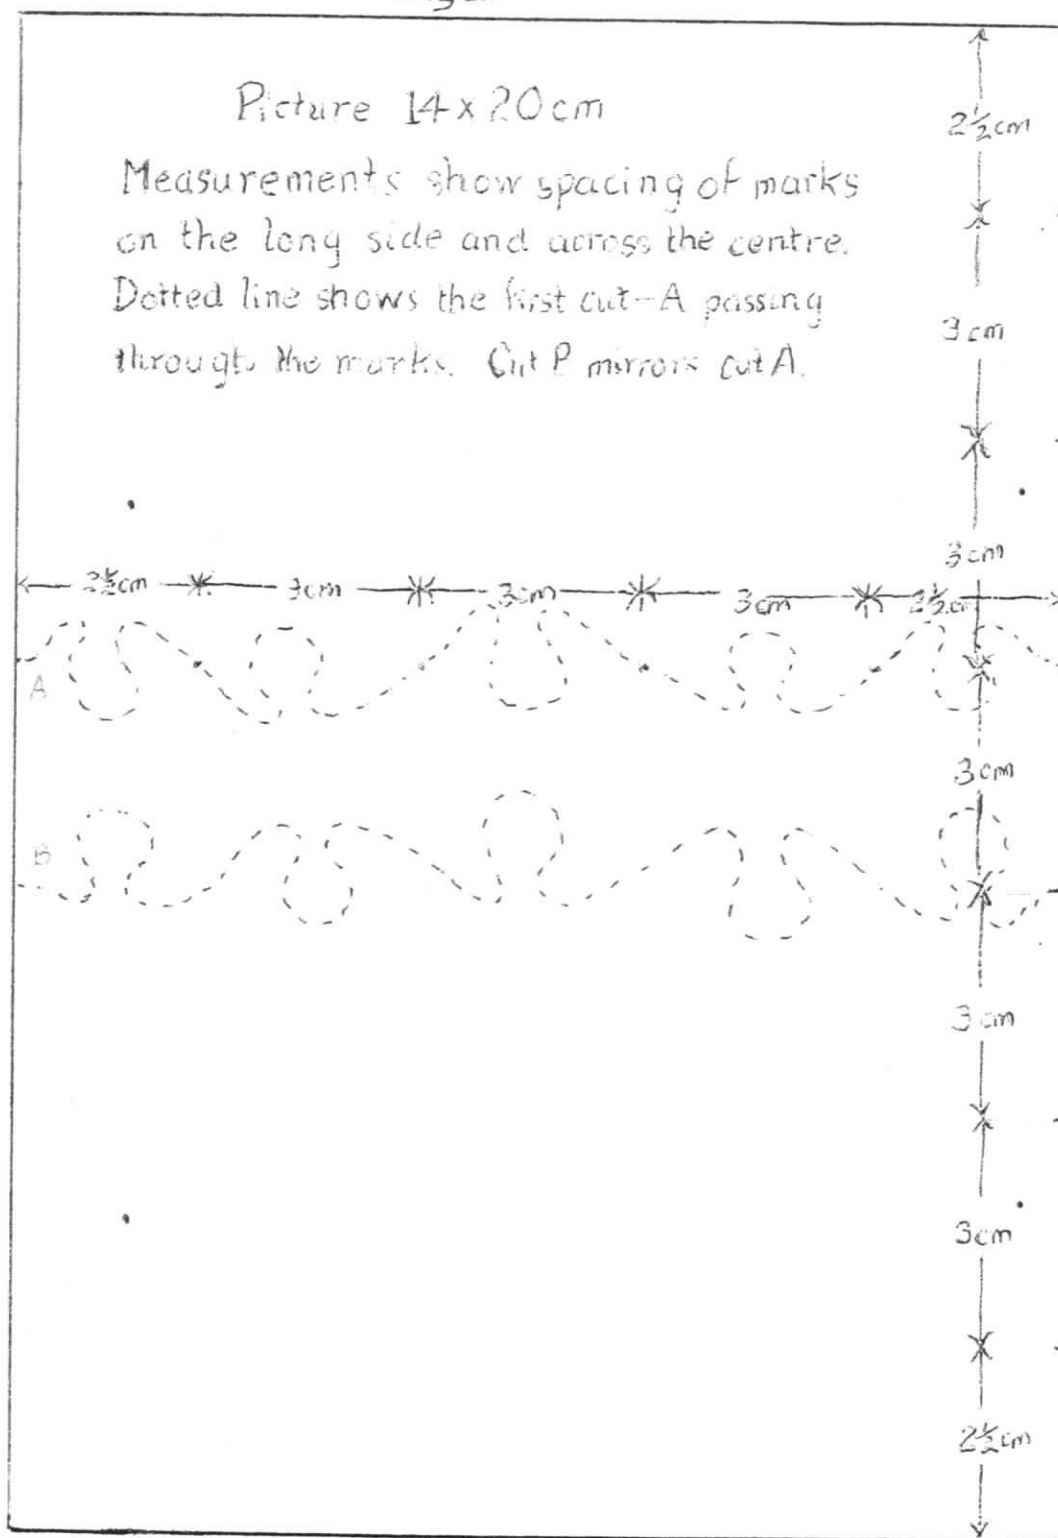 Picture 14 x 20 cm
Measurements show spacing of marks
on the long side and across the centre.
Dotted line shows the first cut-A passing
through the marks. Cut B mirrors cut A.
2½cm
3cm
3cm
2½cm
3cm
3cm
3cm
2½cm
A
3cm
B
3cm
3cm
2½cm